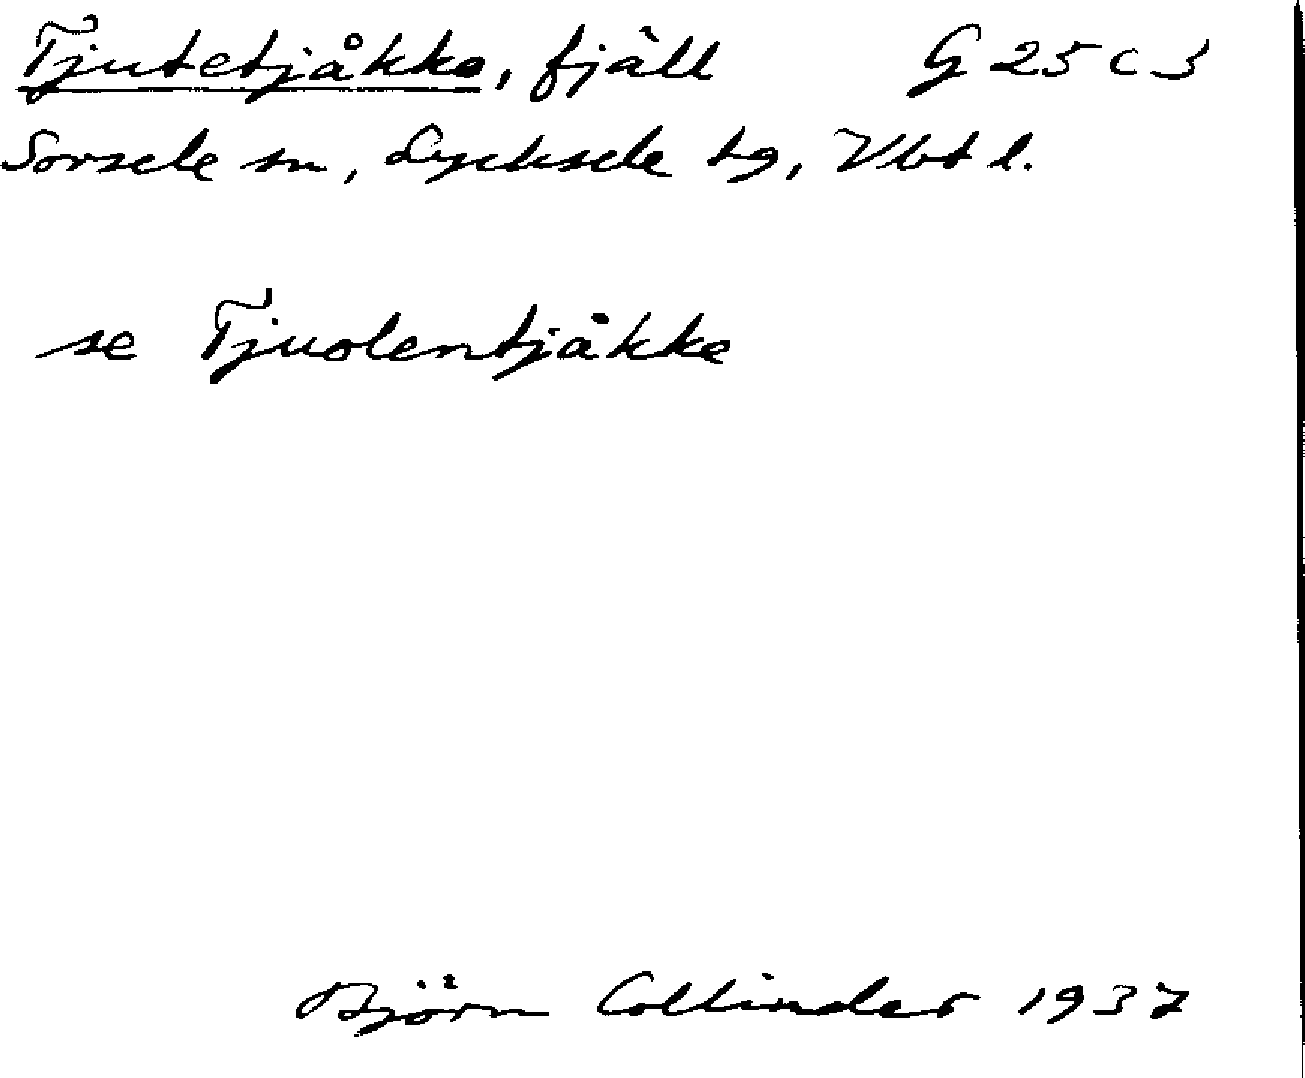 Tjutetjåkke, fjäll G 25 c 3
Sorsele sn, Lycksele tg, Vbt l.
se Tjuolentjåkke
Björn Collinder 1937